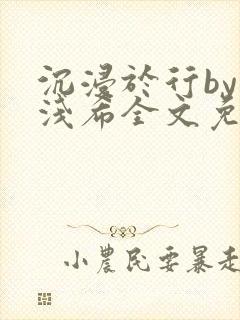 沉浸於行by
浅布全文免
小農民要暴走